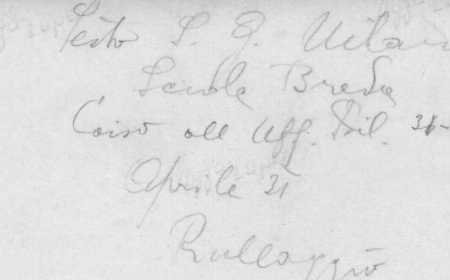 Sesto S. G. Milan
Scuola Breda
Corso all Uff. Pil. 31-
Aprile 31
Rullaggio